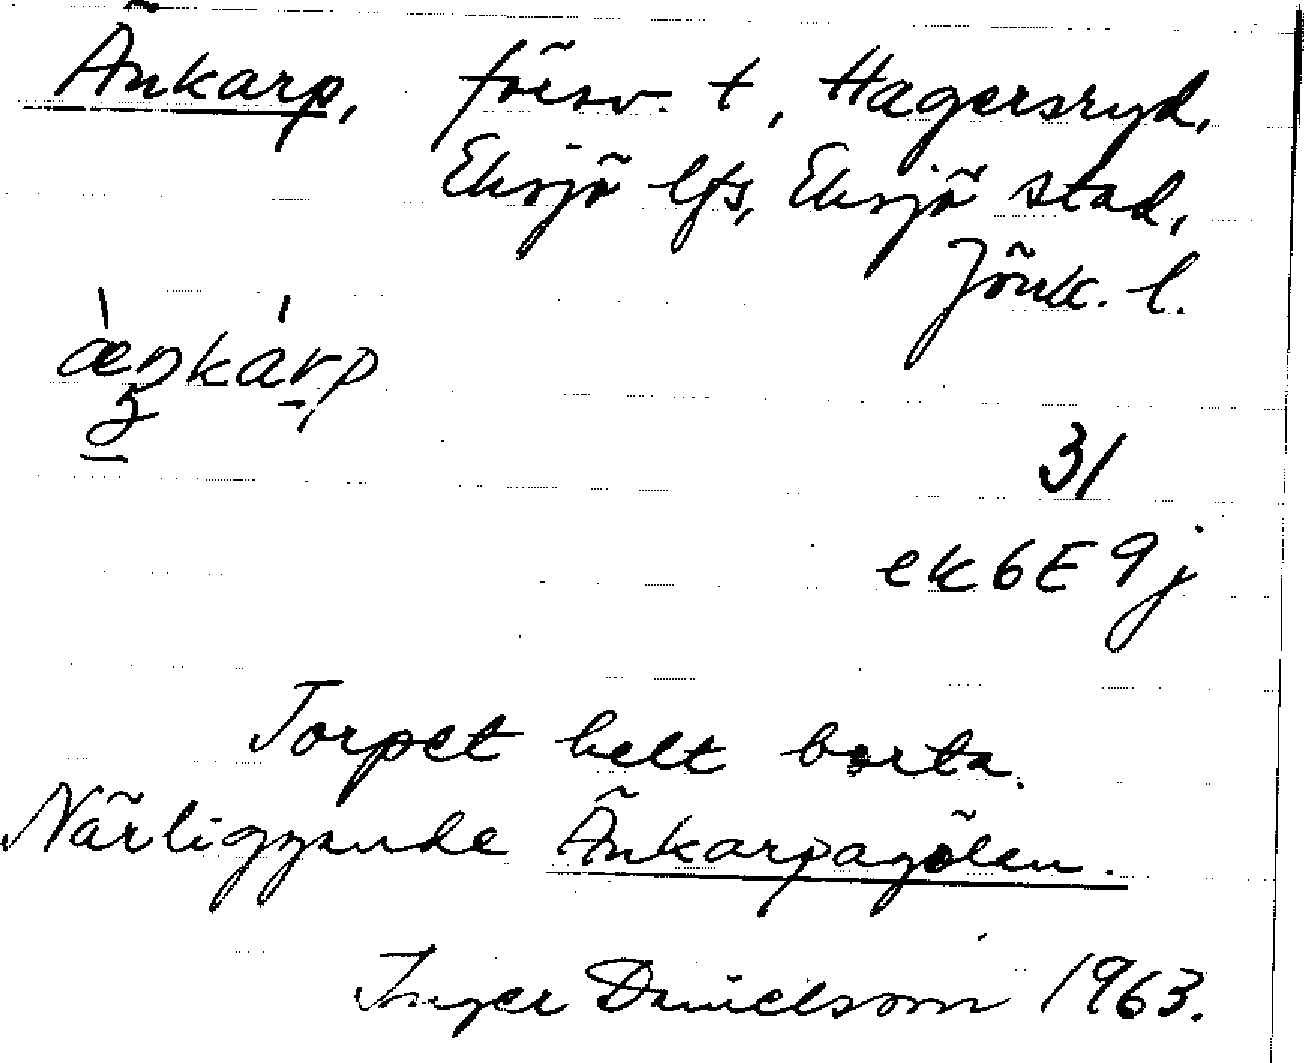 Änkarp, försv. t, Hagersryd,
Eksjö lfs, Eksjö stad,
Jönk. l.
ænkarp
31
ek 6E 9j
Torpet helt borta.
Närliggande Änkarpagölen.
Inger Danielsson 1963.